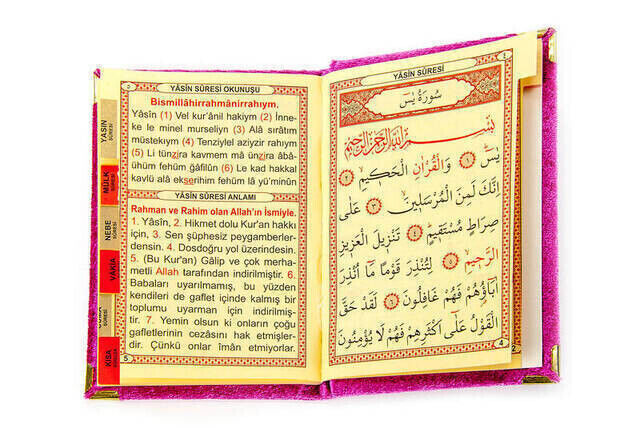 YÂSİN SÛRESİ OKUNUŞU
Bismillâhirrahmânirrahıym.
Yâsîn (1) Vel kur'ânil hakiym (2) İnne-
ke le minel murseliyn (3) Alâ sırâtım
müstekıym (4) Tenziylel aziyzir rahıym
(5) Li tünzira kavmem mâ ünzira âbâ-
ühüm fehüm ğâfilûn (6) Le kad hakkal
kavlü alâ ekserihim fehüm lâ yü'minûn
YÂSİN SÛRESİ ANLAMI
Rahman ve Rahim olan Allah'ın İsmiyle.
1. Yâsîn, 2. Hikmet dolu Kur'an hakkı
için, 3. Sen şüphesiz peygamberler-
densin. 4. Dosdoğru yol üzerindesin.
5. (Bu Kur'an) Gâlip ve çok merha-
metli Allah tarafından indirilmiştir. 6.
Babaları uyarılmamış, bu yüzden
kendileri de gaflet içinde kalmış bir
toplumu uyarman için indirilmiş-
tir. 7. Yemin olsun ki onların çoğu
gafletlerinin cezasını hak etmişler-
dir. Çünkü onlar îman etmiyorlar.
5
YASİN
SÛRESİ
MÜLK
SÛRESİ
NEBE
SÛRESİ
VAKIA
KISA
YÂSİN SÛRESİ
سُورَةُ يٰسٓ
بِسْمِ اللّٰهِ الرَّحْمٰنِ الرَّحِيمِ
يٰسٓ ١ وَالْقُرْاٰنِ الْحَكِيمِ ٢
اِنَّكَ لَمِنَ الْمُرْسَلِينَ ٣ عَلٰى
صِرَاطٍ مُسْتَقِيمٍ ٤ تَنْزِيلَ الْعَزِيزِ
الرَّحِيمِ ٥ لِتُنْذِرَ قَوْمًا مَٓا اُنْذِرَ
اٰبَٓاؤُهُمْ فَهُمْ غَافِلُونَ ٦ لَقَدْ حَقَّ
الْقَوْلُ عَلٰٓى اَكْثَرِهِمْ فَهُمْ لَا يُؤْمِنُونَ
4
2